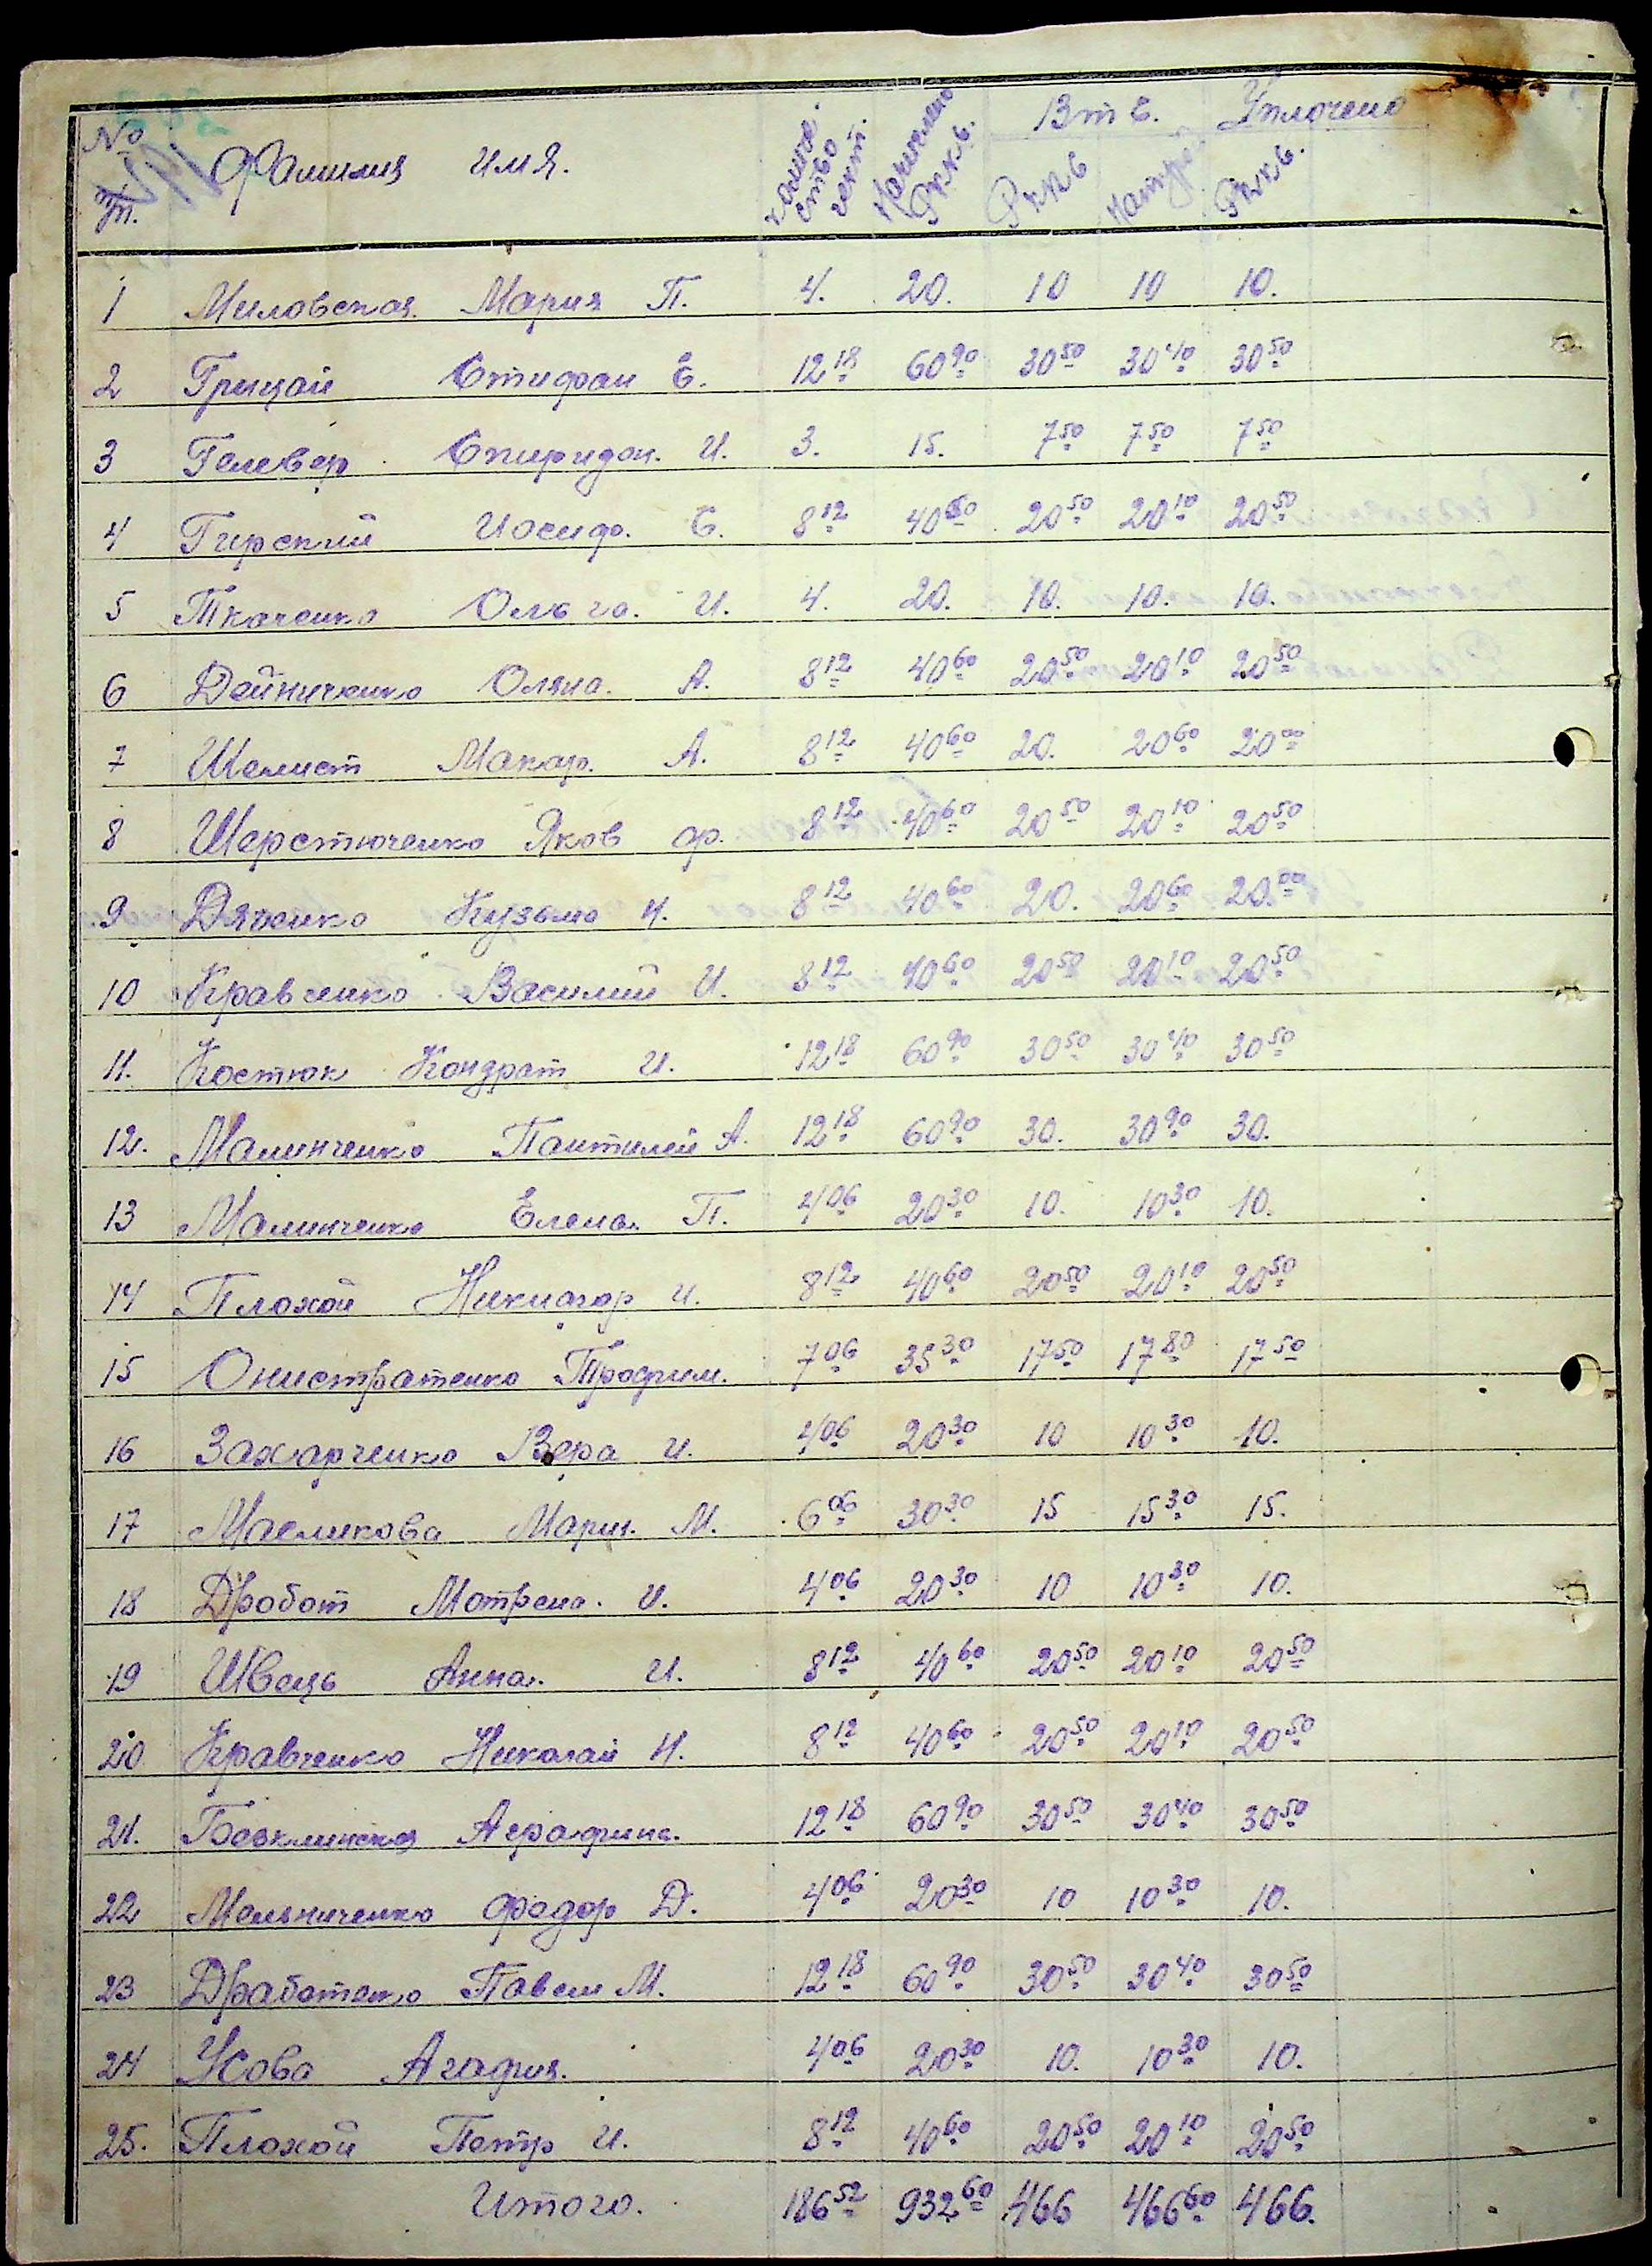 № п/п. Фамилия имя. количество гект. Начислено Рккб. В т. ч. Уплочено
Рккб Натур. Рккб.
1 Миловская Мария П. 4. 20. 10 10 10.
2 Грицай Стифан Е. 12 18 60 90 30 50 30 40 30 50
3 Гелевер Спиридон. И. 3. 15. 7 50 7 50 7 50
4 Гирский Иосиф. Е. 8 12 40 60 20 50 20 10 20 50
5 Ткаченко Ольга. И. 4. 20. 10. 10. 10.
6 Дейниченко Оляна. А. 8 12 40 60 20 50 20 10 20 50
7 Шелист Макар. А. 8 12 40 60 20. 20 60 20 00
8 Шерстюченко Яков ф. 8 12 40 60 20 50 20 10 20 50
9 Дяченко Кузьма И. 8 12 40 60 20. 20 60 20 00
10 Кравченко Василий И. 8 12 40 60 20 50 20 10 20 50
11. Костюк Кондрат И. 12 18 60 90 30 50 30 40 30 50
12. Малинченко Пантилей А. 12 18 60 90 30. 30 90 30.
13 Малинченко Елена П. 4 06 20 30 10. 10 30 10.
14 Плохой Никифор И. 8 12 40 60 20 50 20 10 20 50
15 Онистратенко Трофим. 7 06 35 30 17 50 17 80 17 50
16 Захарченко Вера И. 4 06 20 30 10 10 30 10.
17 Масликова Мария. М. 6 06 30 30 15 15 30 15.
18 Дробот Мотрена. И. 4 06 20 30 10 10 30 10.
19 Швець Анна. И. 8 12 40 60 20 50 20 10 20 50
20 Кравченко Николай И. 8 12 40 60 20 50 20 10 20 50
21. 12 18 60 90 30 50 30 40 30 50
22 Мельниченко Федор Д. 4 06 20 30 10 10 30 10.
23 Дработенко Павел М. 12 18 60 90 30 50 30 40 30 50
24 Усова Агафия. 4 06 20 30 10. 10 30 10.
25. Плохой Петр И. 8 12 40 60 20 50 20 10 20 50
Итого. 186 52 932 60 466 466 60 466.